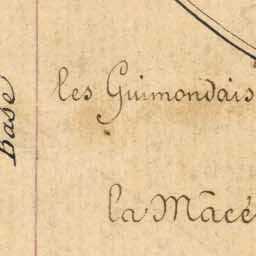 les Guimondais
la Mâcé
Base